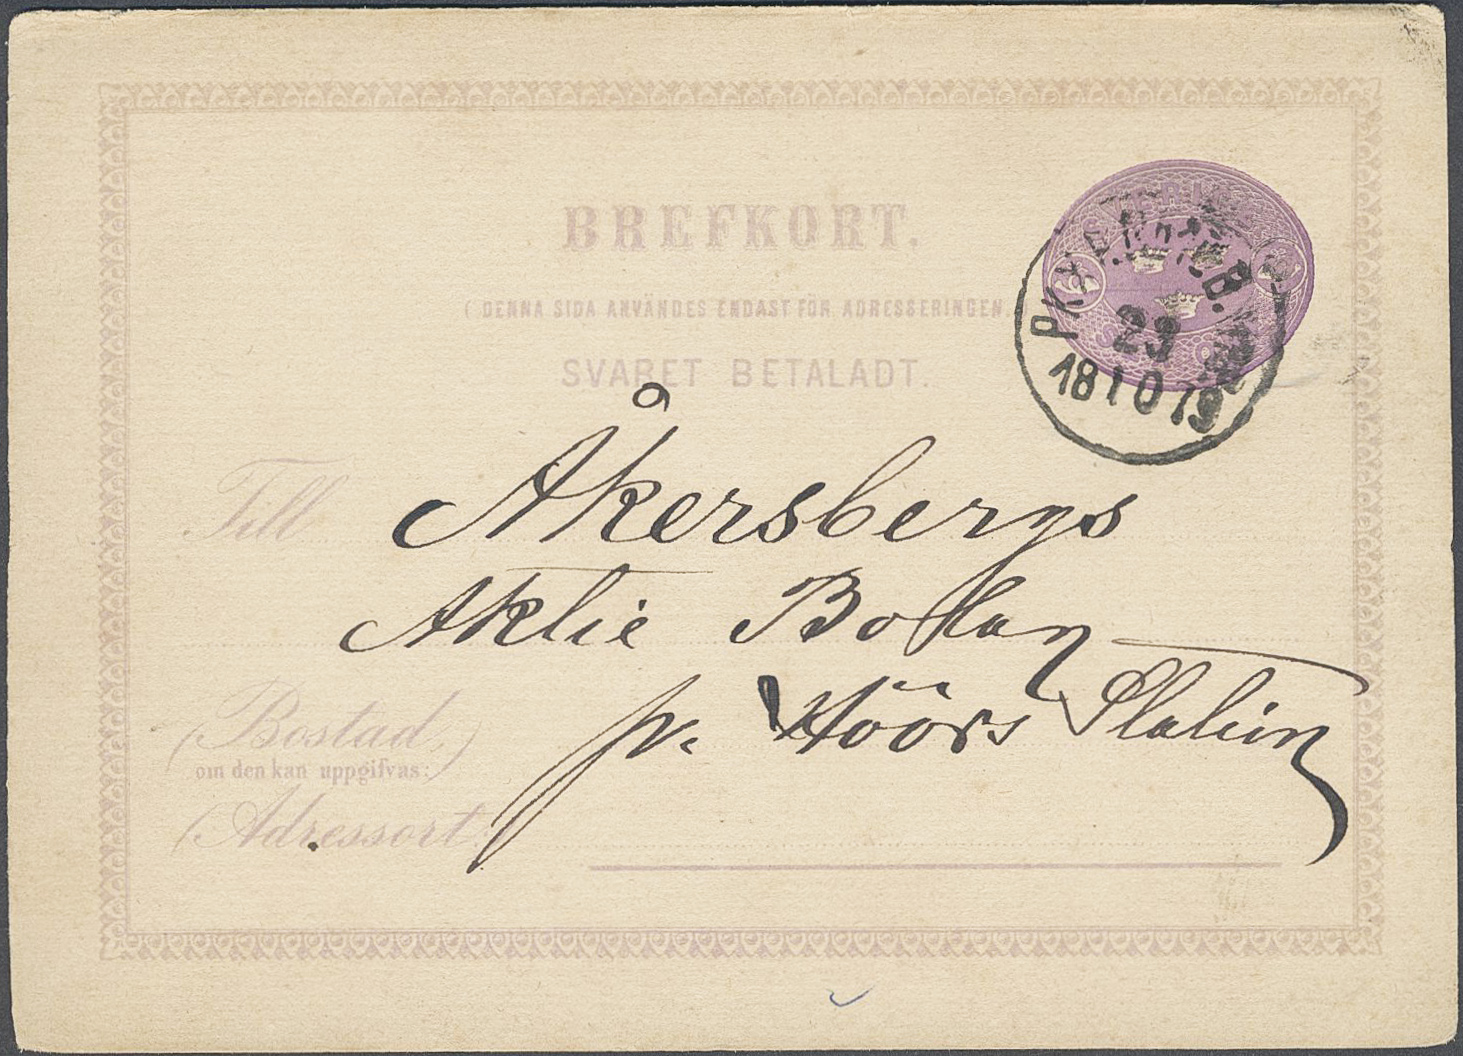 BREFKORT.
(DENNA SIDA ANVÄNDES ENDAST FÖR ADRESSERINGEN.)
SVARET BETALADT.
SVERIGE
PKXP. N:
23
18 10 79
Till Åkersbergs
Aktie Bolag
pr. Höörs Station
(Bostad,
om den kan uppgifvas:)
(Adressort:)